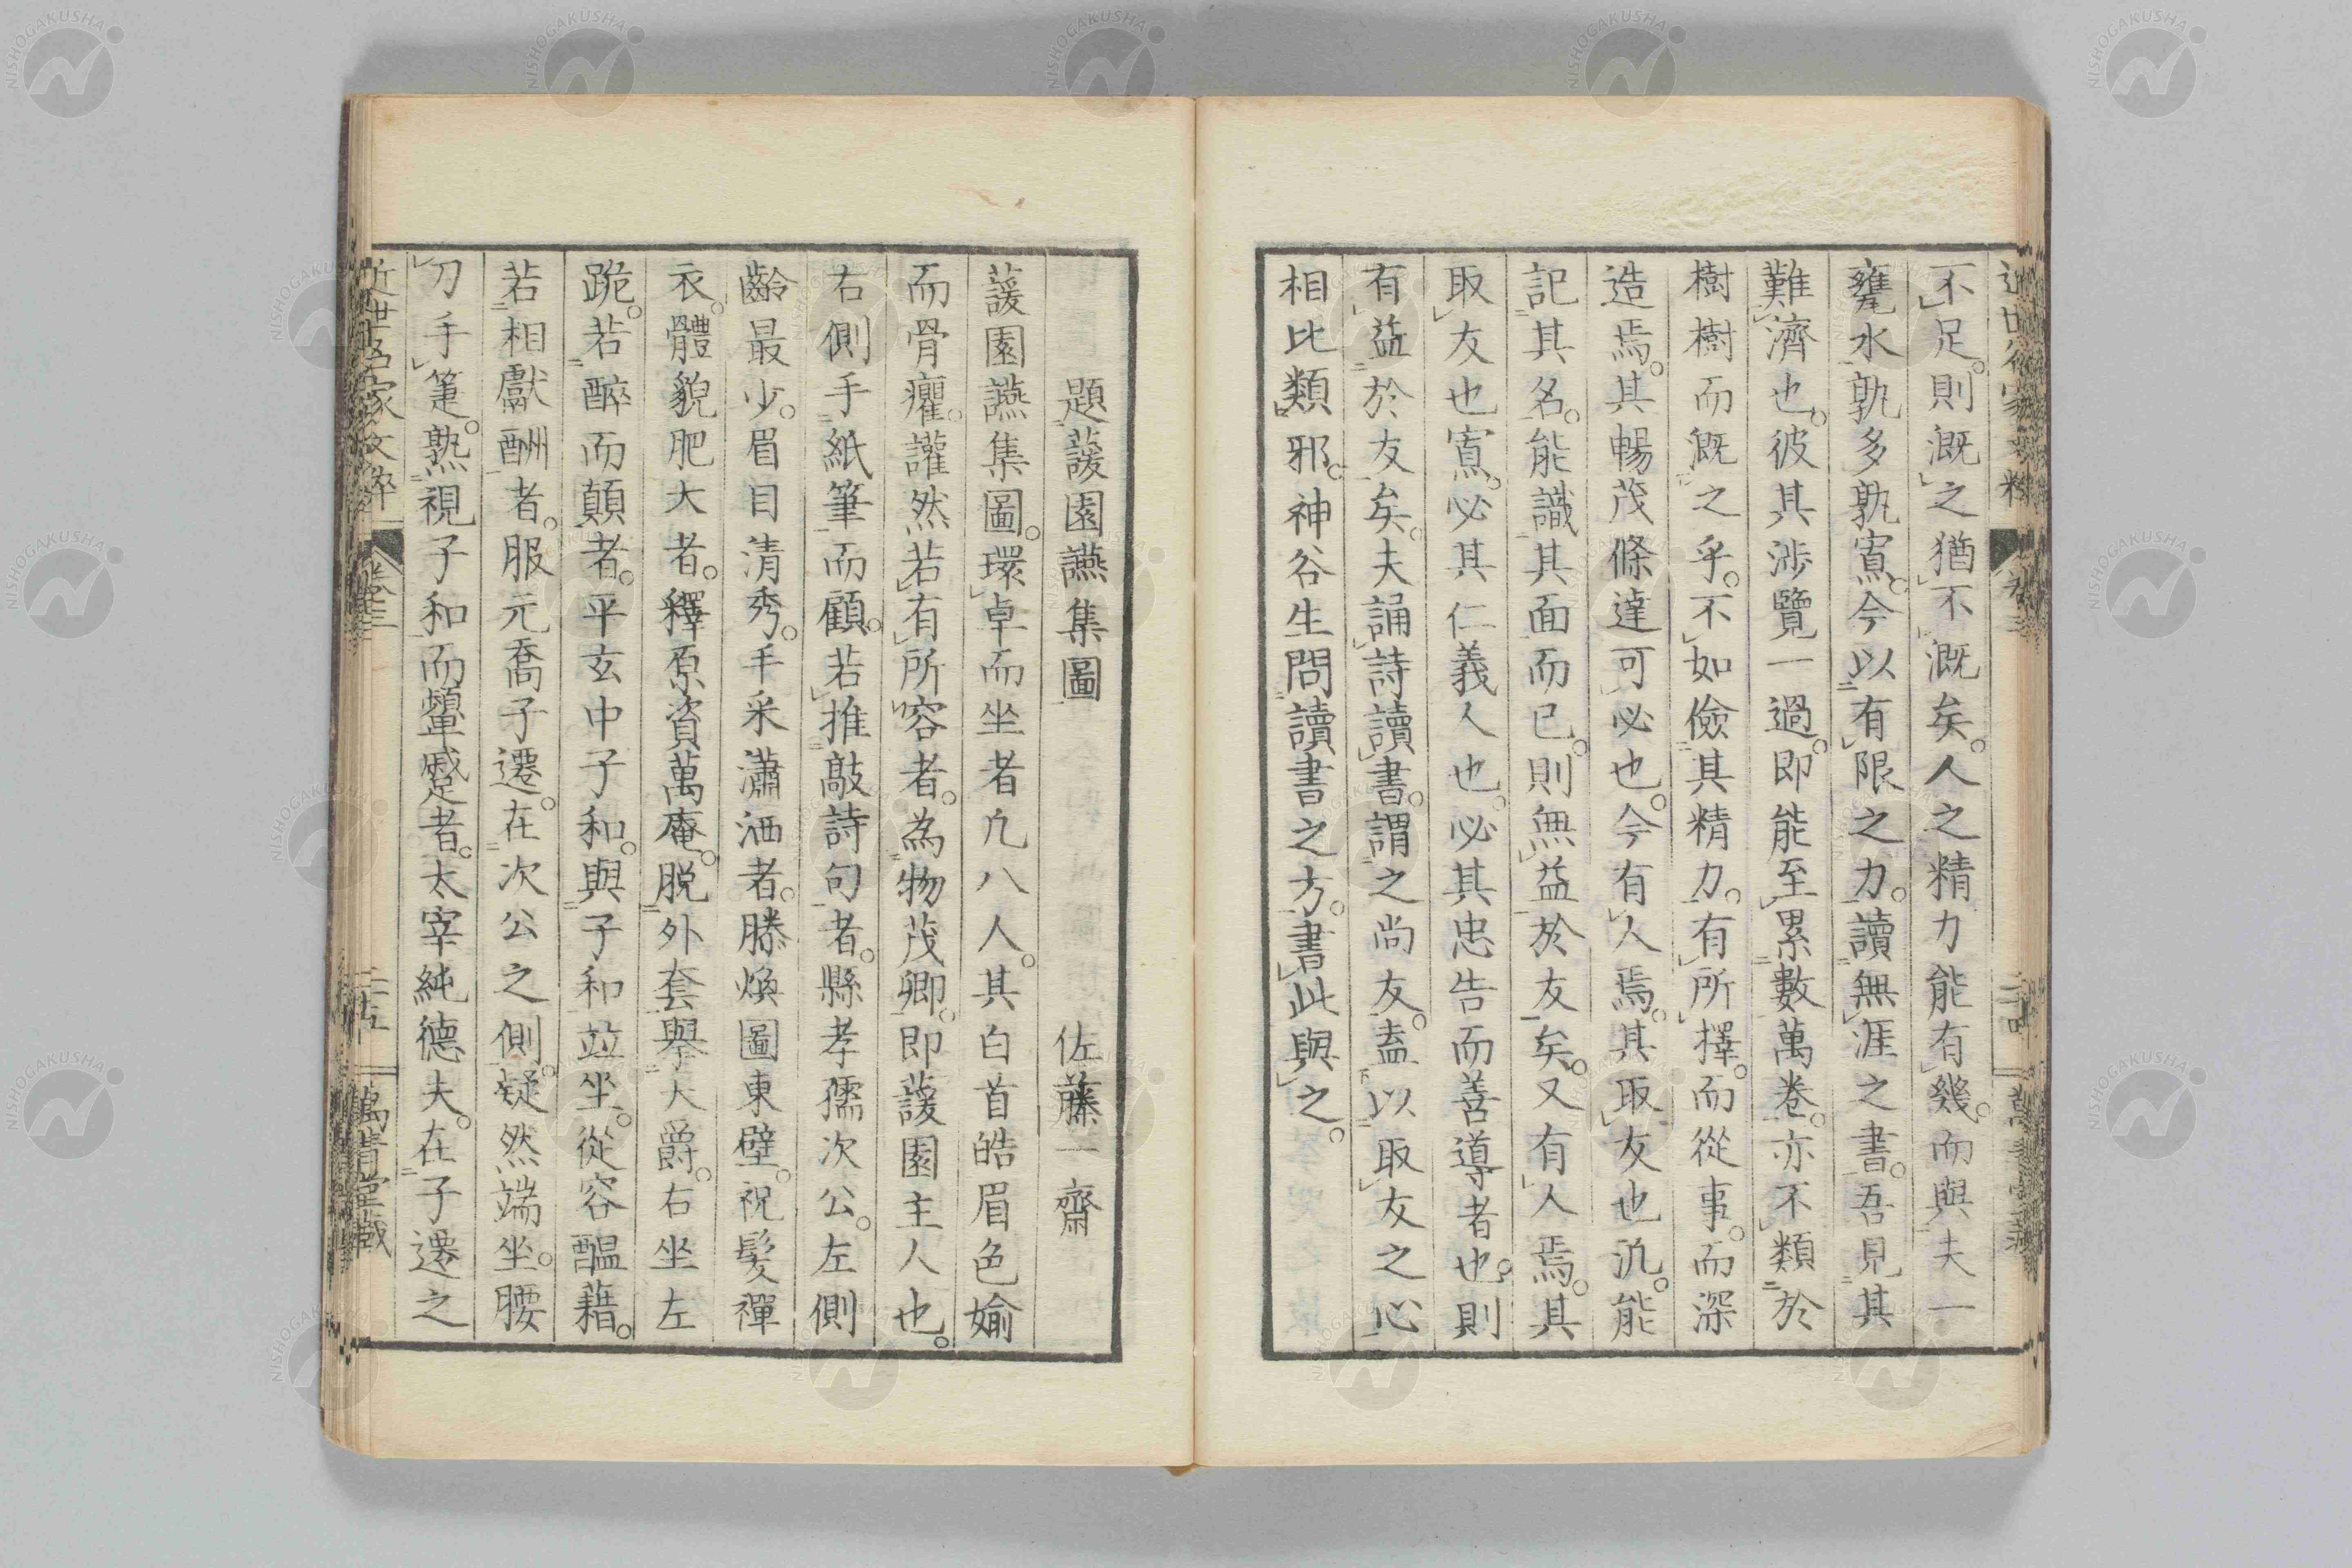 不足。則溉之猶不溉矣。人之精力能有幾。而與夫一
甕水孰多孰寡。今以有限之力。讀無涯之書。吾見其
難濟也。彼其涉覽一過。即能至累數萬卷。亦不類於
樹樹而溉之乎。不如儉其精力。有所擇。而從事。而深
造焉。其暢茂條達可必也。今有人焉。其取友也汎。能
記其名。能識其面而已。則無益於友矣。又有人焉。其
取友也寡。必其仁義人也。必其忠告而善導者也。則
有益於友矣。夫誦詩讀書。謂之尚友。盍以取友之心
相比類邪。神谷生問讀書之方。書此與之。
題蘐園讌集圖
佐藤一齋
蘐園讌集圖。環卓而坐者凡八人。其白首皓眉色婾
而骨癯。讙然若有所容者。為物茂卿。即蘐園主人也。
右側手紙筆而顧。若推敲詩句者。縣孝孺次公。左側
齡最少。眉目清秀。手采瀟洒者。滕煥圖東壁。祝髮禪
衣。體貌肥大者。釋原資萬庵。脱外套舉大爵。右坐左
跪。若醉而顛者。平玄中子和。與子和竝坐。從容醞藉。
若相獻酬者。服元喬子遷。在次公之側。疑然端坐。腰
刀手箑。熟視子和而顰蹙者。太宰純德夫。在子遷之
近世名家文粹
卷三
二十五
萬青堂藏
NISHOGAKUSHA